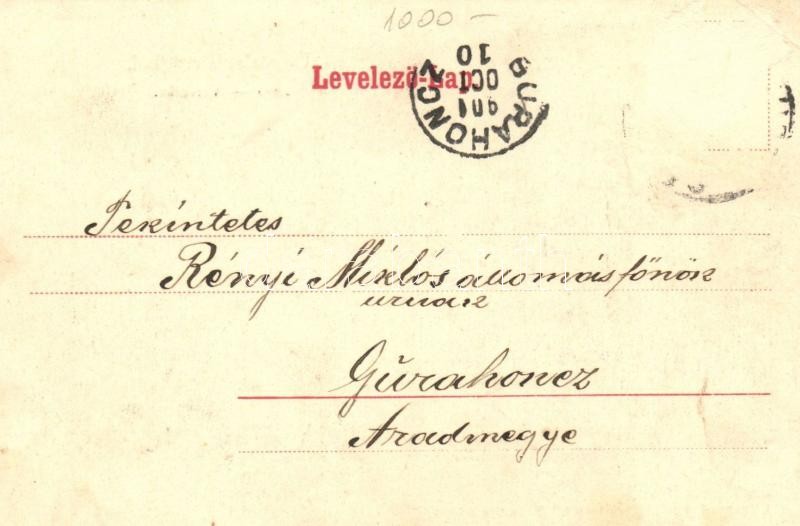 1000-
Levelező-Lap
GURAHONCZ
901
OCT
10
Tekintetes
Rényi Miklós állomásfőnök
urnak
Gurahoncz
Aradmegye